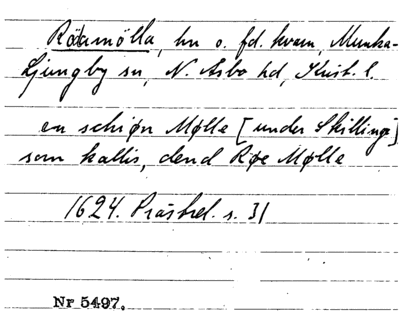 Rödamölla, hn o. fd. kvarn, Munka-
Ljungby sn, N. Åsbo hd, Krist. l.
en schiøn Mølle [under Skillinge]
som kallis, dend Røe Mølle
1624. Prästrel. s. 31
Nr 5497.